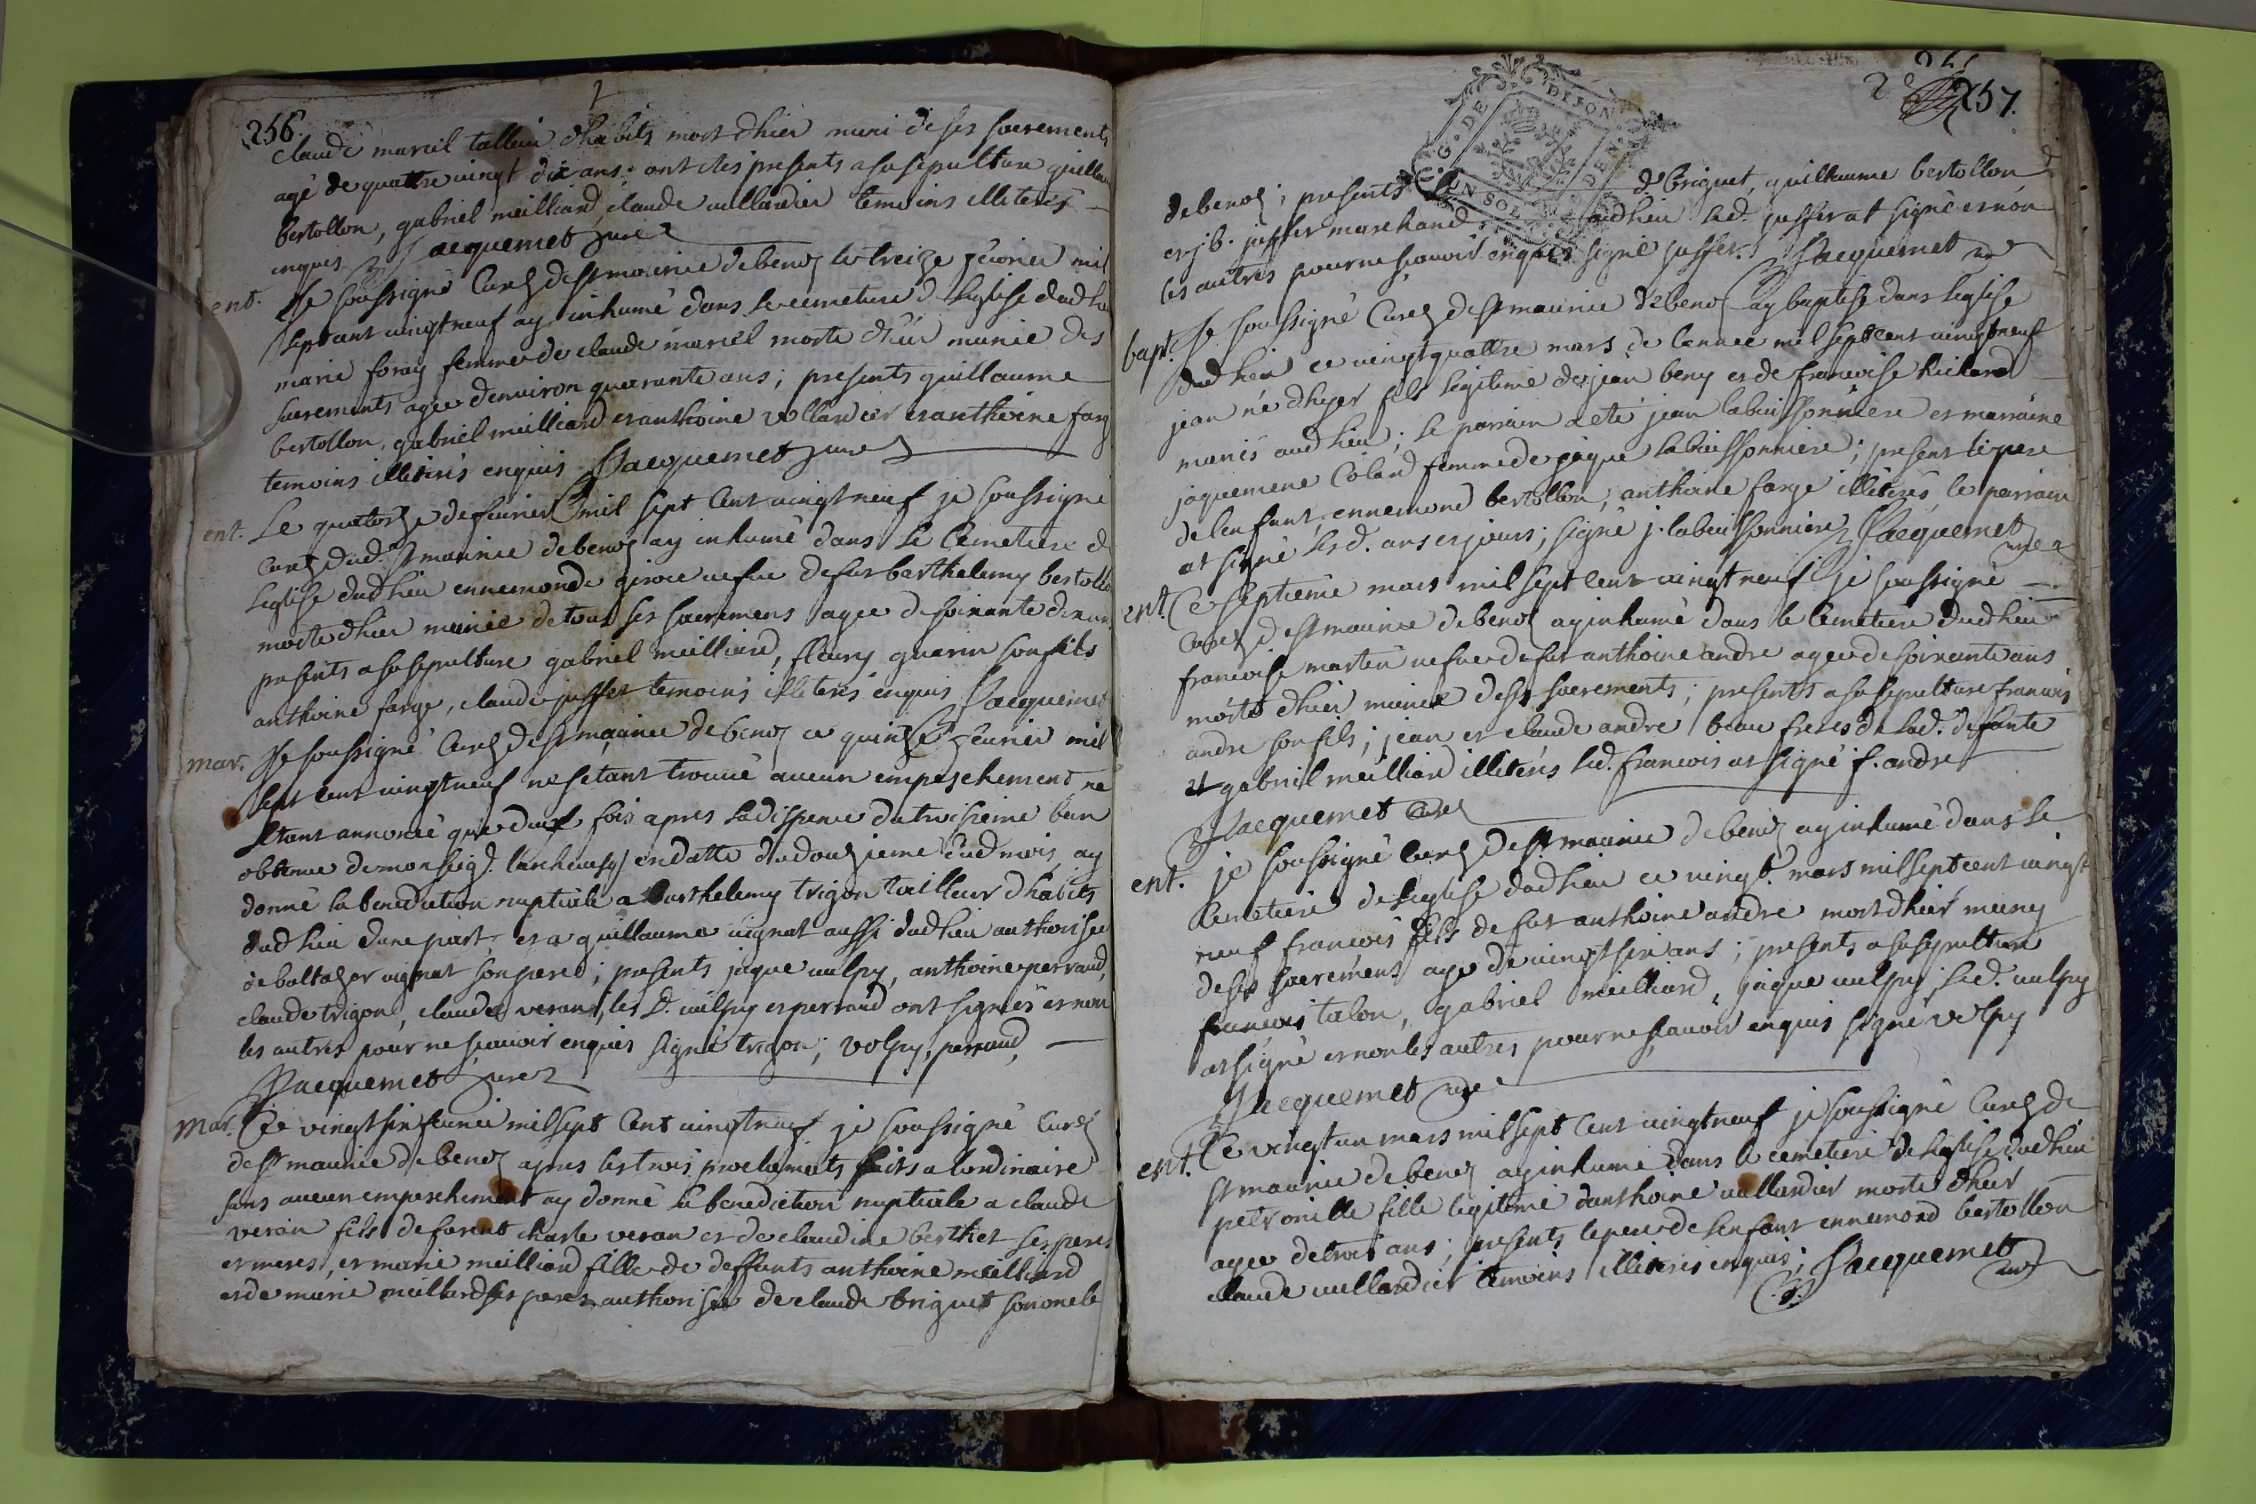 256.
claude mariel tallieur d'habits mort d'hier muni de ses sacrements
agé de quattre vingt dix ans; ont etes presents a sa sepulture guillau
bertollon, gabriel meilliard, claude vullardier temoins illeterés
enquis Jacquemet curé
ent. Je soussigné Curez de st maurice de benoz le treize feurier mil
septcent vingt neuf ay inhumé dans le cemetiere d leglise dud lieu
marie foray femme de claude mariel morte d'hier munie des
sacrements agée denviron quarante ans; presents guillaume
bertollon, gabriel meilliard et anthoine vollardier et anthoine farg
temoins illeterés enquis Jacquemet curé
ent. Le quatorze de feurier mil sept Cent vingt neuf je soussigné
Curez dud. St maurice de benoz ay inhumé dans le Cemetiere d
leglise dud lieu ennemonde girou vefue de fut barthelemy bertollo
morte d'hier munie de tous ses sacremens agée de soixante dix
presents a sa sepulture gabriel meilliard, fleury guarin son fils
anthoine farge, claude jusser temoins illeterés enquis Jacquemet
mar. Je soussigné Curez de St maurice de benoz ce quinze feurier mil
sept cent vingt neuf ne setant trouué aucun empeschement, ne
setant annoncé que deux fois apres la dispence du troisieme ban
obtenue de monseigr. larcheuesq en datte du douzieme dud mois, ay
donné la benediction nuptiale a Barthelemy trigon tailleur d'habits
dud lieu dune part et a guillaume vignat aussi dud lieu authorisée
de baltazar vignat son pere; presents jaque vulpy, anthoine perraud,
claude trigon, claude veran, les d. vulpy et perraud ont signés et non
les autres pour ne scauoir enquis signé trigon; volpy, perraud,
Jacquemet curé
mar. Ce vingt six feurier mil sept Cent vingt neuf je soussigné Curez
de st maurice de benoz apres les trois proclamats faits a lordinaire
sans aucun empeschement ay donné la benediction nuptiale a claude
veran fils de furent charle veran et de claudine berthet ses peres
et meres, et marie meilliard fille de deffunts anthoine meilliard
et de marie meillard ses peres authorisée de claude briguet son oncle
257.
de benoz; presents d. briguet, guillaume bertollon
et jb. jusser marchand audlieu led. jusser at signé et non
les autres pour ne scauoir enquis signé jusser. Jacquemet curé
bapt. Je soussigné Curez de st maurice de benoz ay baptisé dans leglise
dud lieu ce vingt quattre mars de lannée mil sept cent vingt neuf
jean né d'hyer fils legitime de jean beny et de francoise Richard
mariés aud lieu; le parrain a eté jean labuissonniere et marraine
jaquemene Colard femme de jaque labuissonniere; present le pere
de lenfant, ennemond bertollon, anthoine farge illeterés, le parrain
at signé lesd. ans et jours; signé j. labuissonniere Jacquemet curé
ent. Ce septieme mars mil sept Cent vingt neuf je soussigné
Curez de st maurice de benoz ay inhumé dans le Cemetiere dud lieu
francoise martin vefue de fut anthoine andré agée de soixante ans
morte d'hier munie de ses sacrements; presents a sa sepulture francois
andre son fils; jean et claude andre beau freres de lad. defunte
et gabriel meilliard illeterés led. francois at signé f. andre
Jacquemet Curé
ent. je soussigné Curez de st maurice de benoz ay inhumé dans le
Cemetiere de leglise dud lieu ce vingt mars mil sept cent vingt
neuf francois fils de fut anthoine andré mort d'hier muny
de ses sacremens agé de vingt six ans; presents a sa sepulture
francois talon, gabriel meilliard, jaque vulpy; led. vulpy
at signé et non les autres pour ne scauoir enquis signé volpy
Jacquemet curé
ent. Ce vingt un mars mil sept Cent vingt neuf je soussigné Curez de
st maurice de benoz ay inhumé dans le cemetiere de leglise dud lieu
petronille fille legitime danthoine vullardier morte d'hier
agée de trois ans; presents le pere de lenfant ennemond bertollon
claude vullardier temoins illeterés enquis; Jacquemet curé